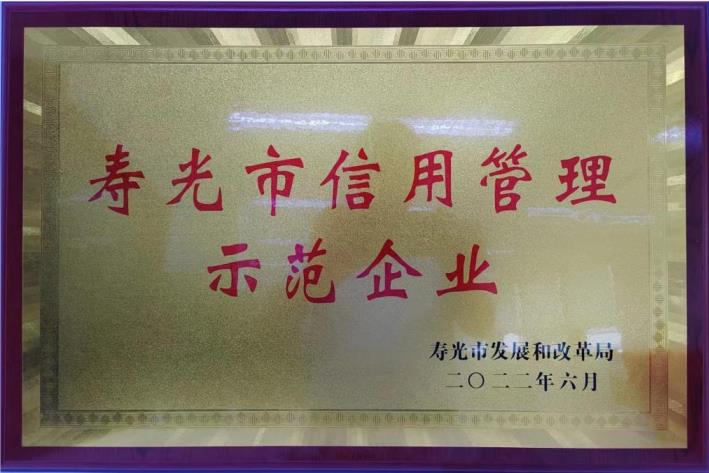 寿光市信用管理
示范企业
寿光市发展和改革局
二〇二二年六月